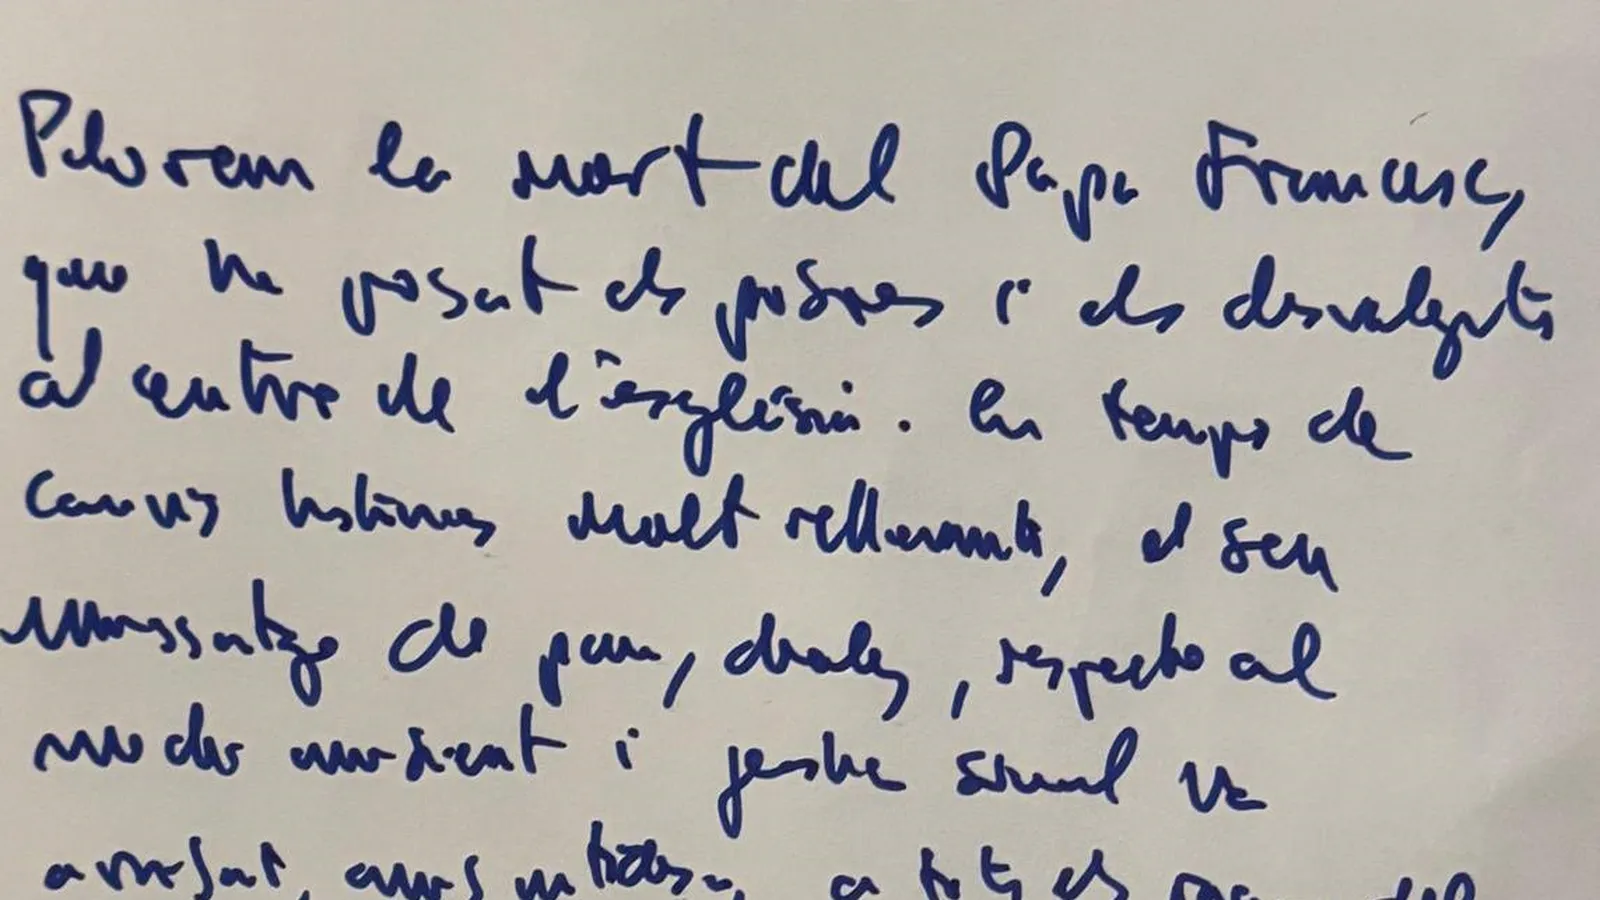 Plorem la mort del Papa Francesc,
que ha posat els pobres i els desvalguts
al centre de l'església. En temps de
canvis històrics molt rellevants, el seu
missatge de pau, diàleg, respecte al
medi ambient i justícia social va
arribat, amb, a tots els racons del